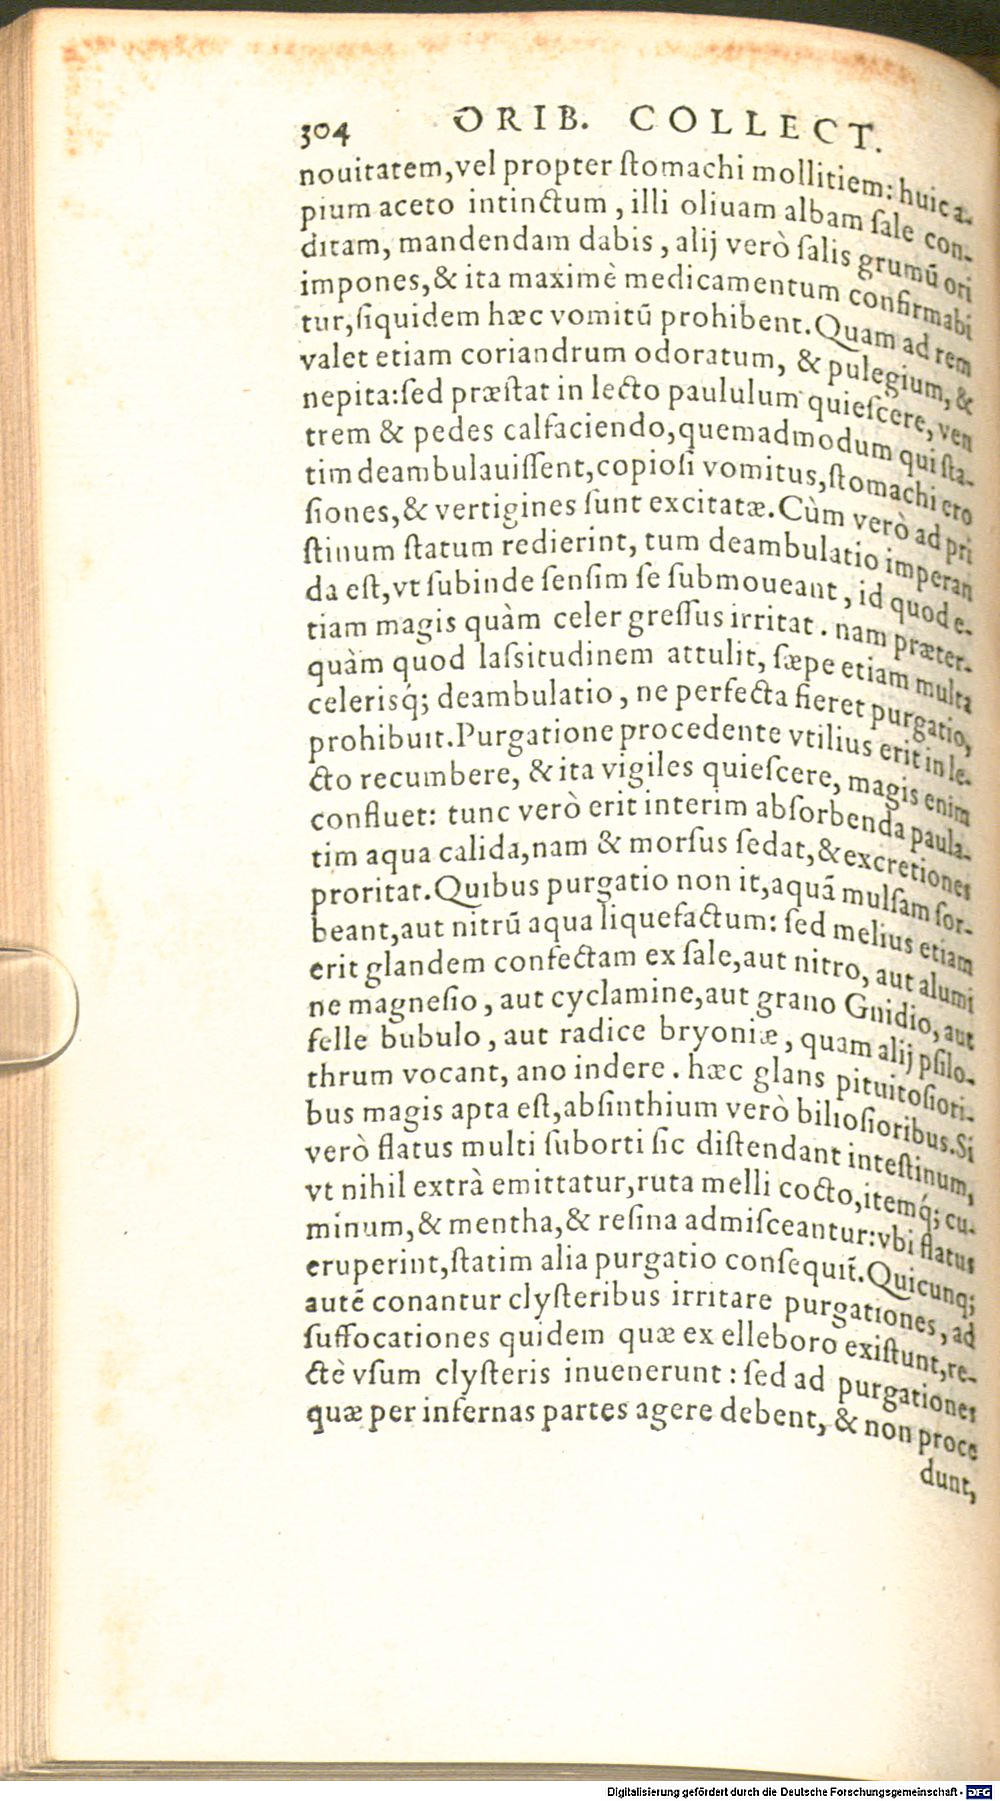 304 ORIB. COLLECT.
nouitatem, vel propter ſtomachi mollitiem: huic a-
pium aceto intinctum, illi oliuam albam ſale con-
ditam, mandendam dabis, alij verò ſalis grumū ori
impones, & ita maximè medicamentum confirmabi
tur, ſiquidem hæc vomitū prohibent. Quam ad rem
valet etiam coriandrum odoratum, & pulegium, &
nepita: ſed præſtat in lecto paululum quieſcere, ven
trem & pedes calfaciendo, quemadmodum qui ſta-
tim deambulauiſſent, copioſi vomitus, ſtomachi ero
ſiones, & vertigines ſunt excitatæ. Cùm verò ad pri
ſtinum ſtatum redierint, tum deambulatio imperan
da eſt, vt ſubinde ſenſim ſe ſubmoueant, id quod e-
tiam magis quàm celer greſſus irritat. nam præter-
quàm quod laſsitudinem attulit, ſæpe etiam multa
celerisq́; deambulatio, ne perfecta fieret purgatio,
prohibuit. Purgatione procedente vtilius erit in le-
cto recumbere, & ita vigiles quieſcere, magis enim
confluet: tunc verò erit interim abſorbenda paula-
tim aqua calida, nam & morſus ſedat, & excretiones
proritat. Quibus purgatio non it, aquā mulſam ſor-
beant, aut nitrū aqua liquefactum: ſed melius etiam
erit glandem confectam ex ſale, aut nitro, aut alumi
ne magneſio, aut cyclamine, aut grano Gnidio, aut
felle bubulo, aut radice bryoniæ, quam alij pſilo-
thrum vocant, ano indere. hæc glans pituitoſiori-
bus magis apta eſt, abſinthium verò bilioſioribus. Si
verò flatus multi ſuborti ſic diſtendant inteſtinum,
vt nihil extrà emittatur, ruta melli cocto, itemq́; cu-
minum, & mentha, & reſina admiſceantur: vbi flatus
eruperint, ſtatim alia purgatio conſequit̃. Quicunq;
autē conantur clyſteribus irritare purgationes, ad
ſuffocationes quidem quæ ex elleboro exiſtunt, re-
ctè vſum clyſteris inuenerunt: ſed ad purgationes
quæ per infernas partes agere debent, & non proce
dunt,
Digitalisierung gefördert durch die Deutsche Forschungsgemeinschaft - DFG